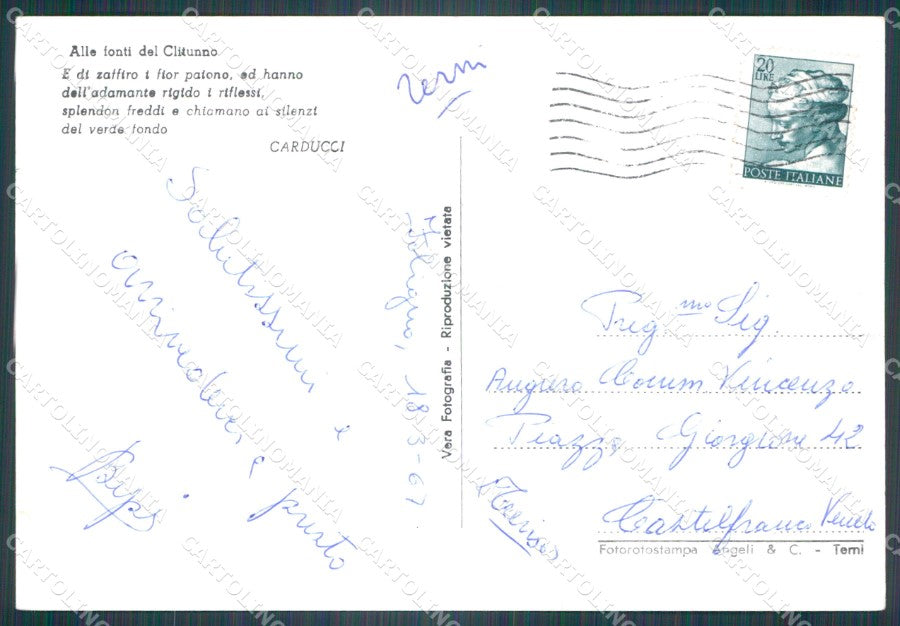 Alle fonti del Clitunno
E di zaffiro i fior paiono, ed hanno
dell'adamante rigido i riflessi,
splendon freddi e chiamano ai silenzi
del verde fondo
CARDUCCI
Terni
20
LIRE
POSTE ITALIANE
Foligno, 18-3-67
Salutissimi e
arrivederci a
presto
Vera Fotografia - Riproduzione vietata
Preg.mo Sig.
Vincenzo
Piazza Giorgione 42
Castelfranco Veneto
(Treviso)
Fotorotostampa Angeli & C. - Terni
CARTOLINOMANIA